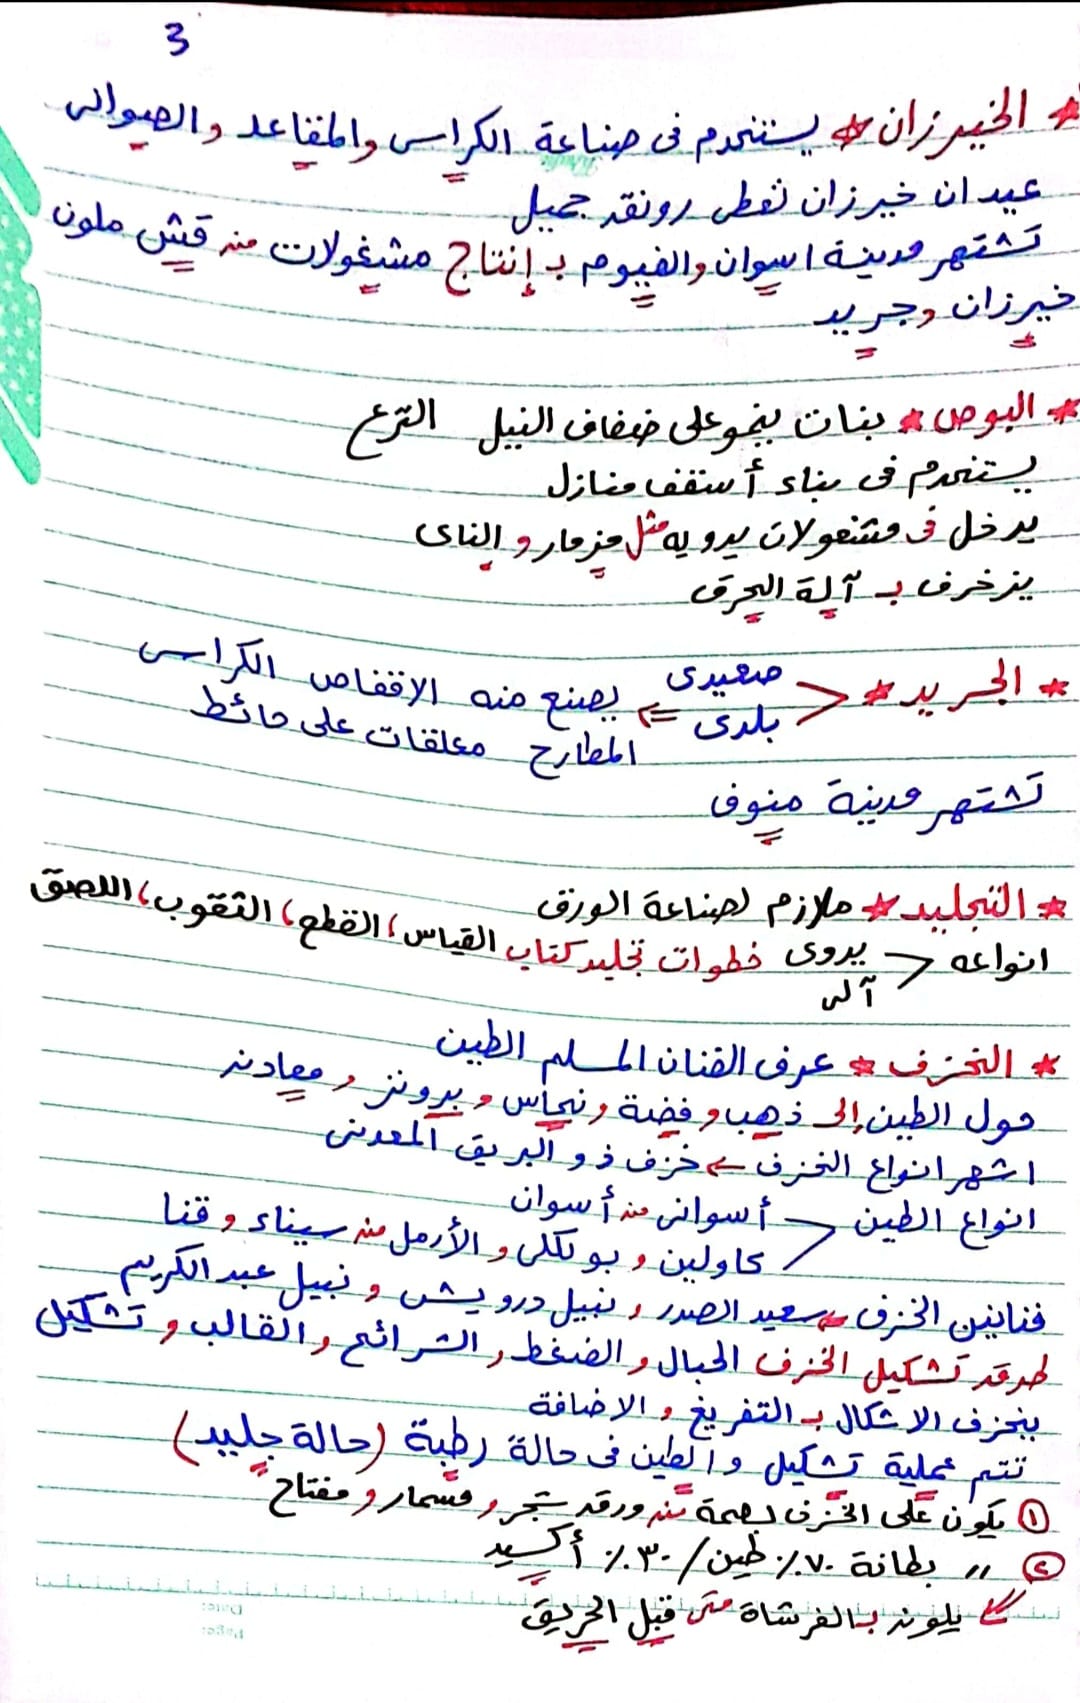 3
* الخيرزان * يستخدم فى صناعة الكراسى والمقاعد والصوانى
عيدان خيرزان تعطى رونقه جميل
تشتهر مدينة اسوان والفيوم بـ إنتاج مشغولات منه قش ملون
خيرزان وجريد
* البوص * بنات ينمو على ضفاف النيل الترع
يستخدم فى بناء أسقف منازل
يدخل فى مشغولات يدويه مثل مزمار و الناى
يزخرف بـ آلة الحرق
* الجريد * < صعيدى
بلدى => يصنع منه الاقفاص الكراسى
المطارح معلقات على حائط
تشتهر مدينة منوف
* التجليد * ملازم لصناعة الورق
انواعه < يدوى خطوات تجليد كتاب القياس، القطع، الثقوب، اللصق
آلى
* الخزف * عرف الفنان المسلم الطين
حول الطين إلى ذهب وفضة ونحاس و برونز و معادنه
اشهر انواع الخزف <- خزف ذو البريق المعدنى
انواع الطين < أسوانى منه أسوان
كاولين و بوتكلى و الأرمل منه سيناء و قنا
فنانين الخزف سعيد الصدر و نبيل درويش و نبيل عبد الكريم
طرقه تشكيل الخزف الحبال و الضغط و الشرائح و القالب و تشكيل
بنحزف الاشكال بـ التفريغ و الاضافة
تتم عملية تشكيل و الطين فى حالة رطبة (حالة جليد)
① يكون على الخزف بصمة منه ورقه شجر و مسمار و مفتاح
② ״ بطانة ٧٠٪ طين / ٣٠٪ أكسيد
يلونه بالفرشاة متى قبل الحريق
Date:
Page: